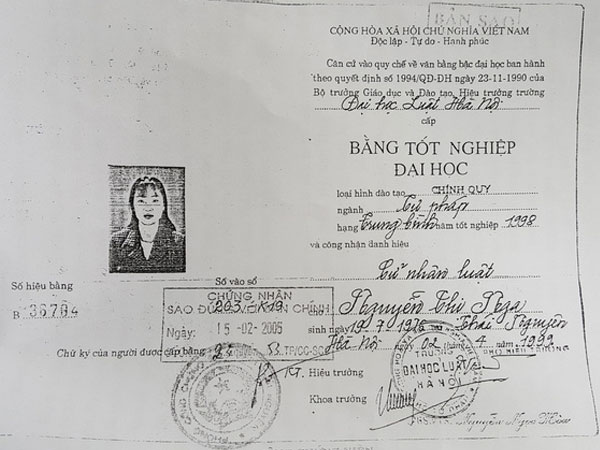 BẢN SAO
CỘNG HÒA XÃ HỘI CHỦ NGHĨA VIỆT NAM
Độc lập - Tự do - Hạnh phúc
Căn cứ vào quy chế về văn bằng bậc đại học ban hành
theo quyết định số 1994/QĐ-ĐH ngày 23-11-1990 của
Bộ trưởng Giáo dục và Đào tạo, Hiệu trưởng trường
Đại học Luật Hà Nội
cấp
BẰNG TỐT NGHIỆP
ĐẠI HỌC
loại hình đào tạo CHÍNH QUY
ngành Tư pháp
hạng Trung bình năm tốt nghiệp 1998
và công nhận danh hiệu
Cử nhân luật
Số hiệu bằng
B 36784
Số vào sổ
CHỨNG NHẬN
SAO ĐÚNG VỚI BẢN CHÍNH
Ngày: 15-02-2005
TP/CC-SC
Nguyễn Thị Nga
sinh ngày 19.7.1976 Thái Nguyên
Hà Nội 02 tháng 4 năm 1999
Chữ ký của người được cấp bằng
Hiệu trưởng
Khoa trưởng
TRƯỜNG
ĐẠI HỌC LUẬT
HÀ NỘI
PHÓ HIỆU TRƯỞNG